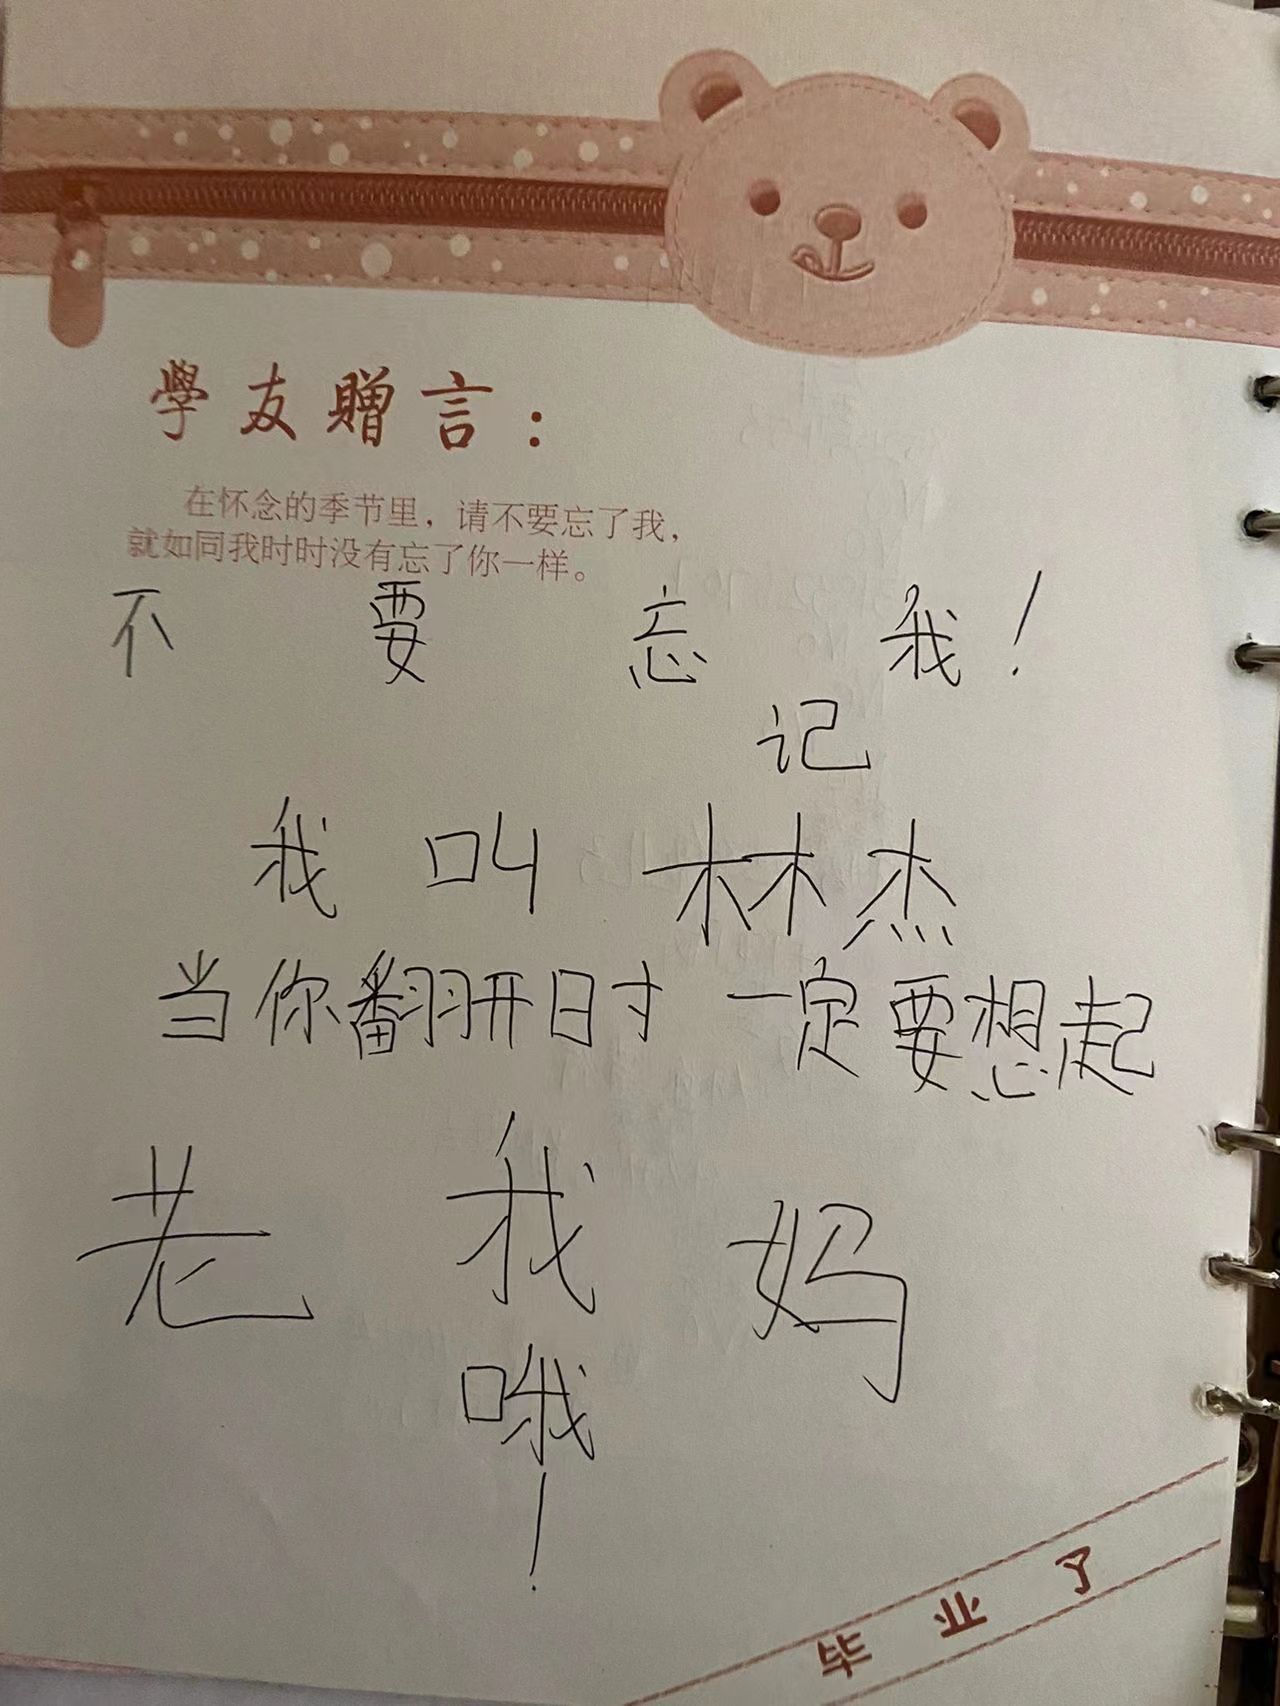 學友贈言：
在怀念的季节里，请不要忘了我，
就如同我时时没有忘了你一样。
不要忘我！
记
我叫林杰
当你翻开时一定要想起
老我妈
哦
！
毕业了